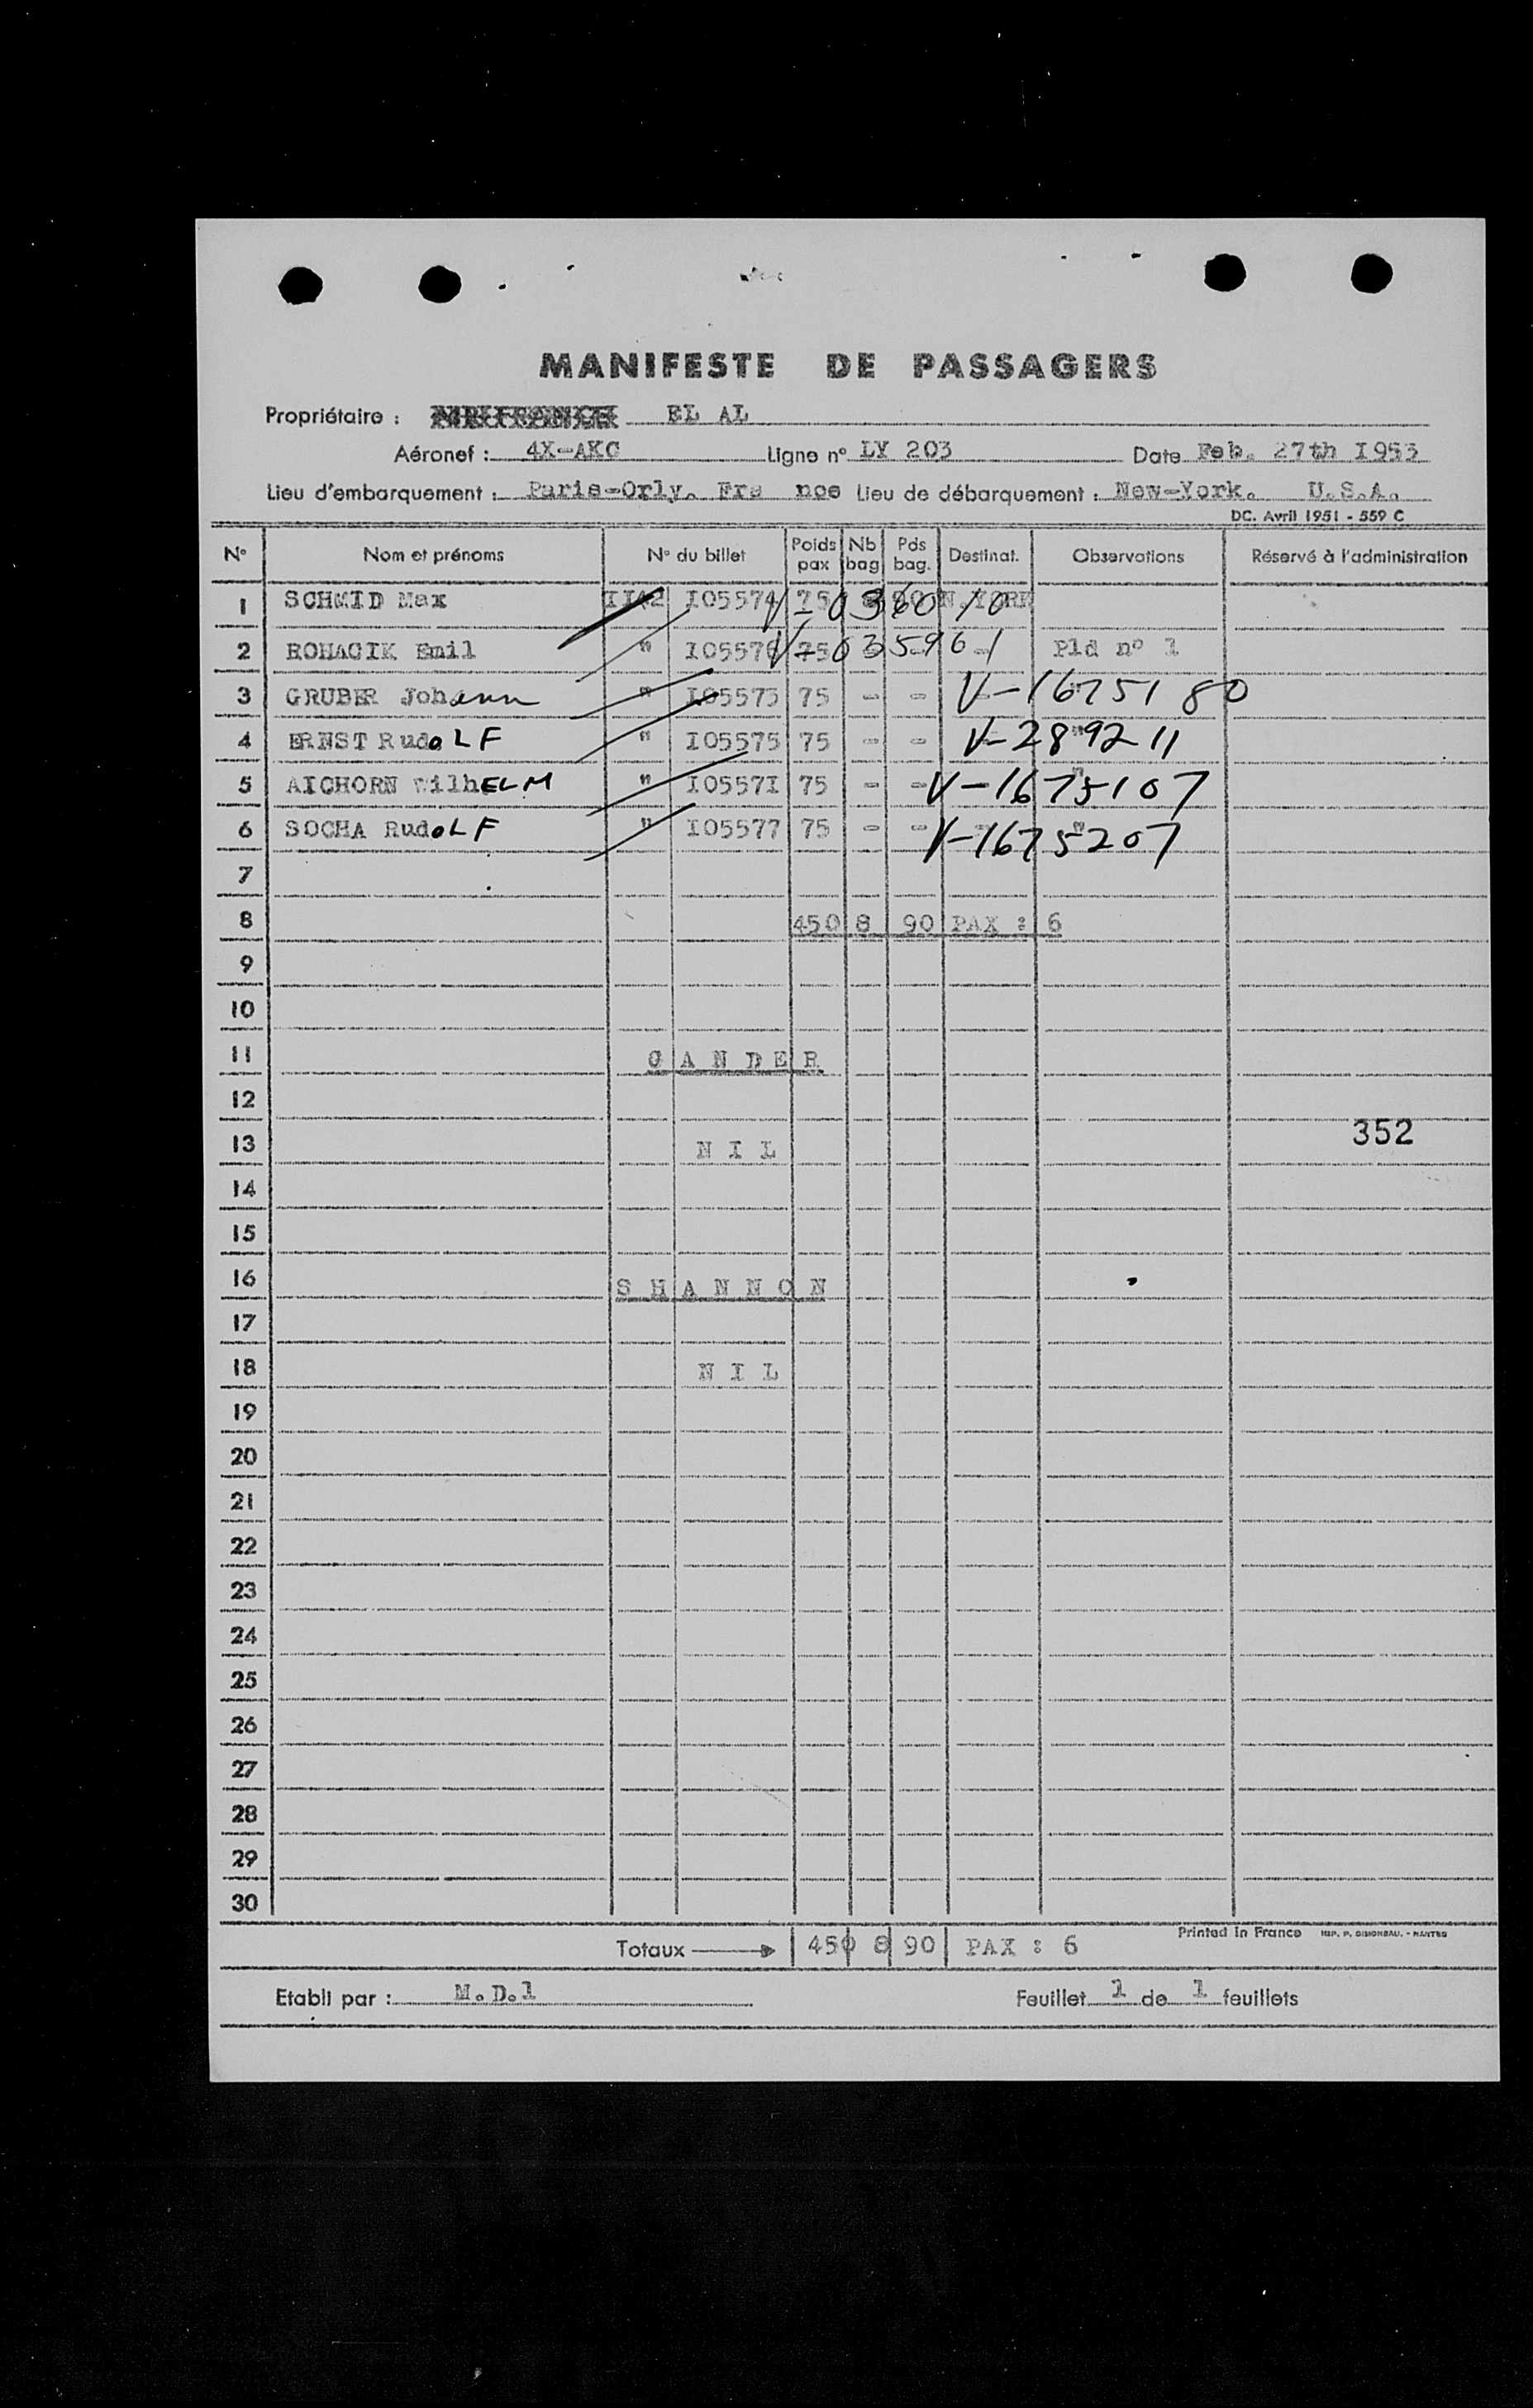 MANIFESTE DE PASSAGERS
Propriétaire : AIR FRANCE EL AL
Aéronef : 4X-AKC Ligne n° LY 203 Date Feb. 27th I953
Lieu d'embarquement : Paris-Orly. Fra nce Lieu de débarquement : New-York. U.S.A.
DC. Avril 1951 - 559 C
N° Nom et prénoms N° du billet Poids pax Nb bag Pds bag. Destinat. Observations Réservé à l'administration
1 SCHMID Max II42 I05574 75 8 90 N.YORK V-036010
2 ROHACIK Emil " I05576 75 - - - Pld n° 1 V-035961
3 GRUBER Johann " I05573 75 - - V-1675180
4 ERNST RudoLF " I05575 75 - - " V-289211
5 AICHORN WilhELM " I0557I 75 - - " V-1675107
6 SOCHA RudoLF " I05577 75 - - " V-1675207
7
8 450 8 90 PAX : 6
9
10
11 G A N D E R
12
352
13 N I L
14
15
16 S H A N N O N
17
18 N I L
19
20
21
22
23
24
25
26
27
28
29
30
Printed in France IMP. P. SIMONEAU. - NANTES
Totaux 450 8 90 PAX : 6
Etabli par : M.D.1 Feuillet 1 de 1 feuillets